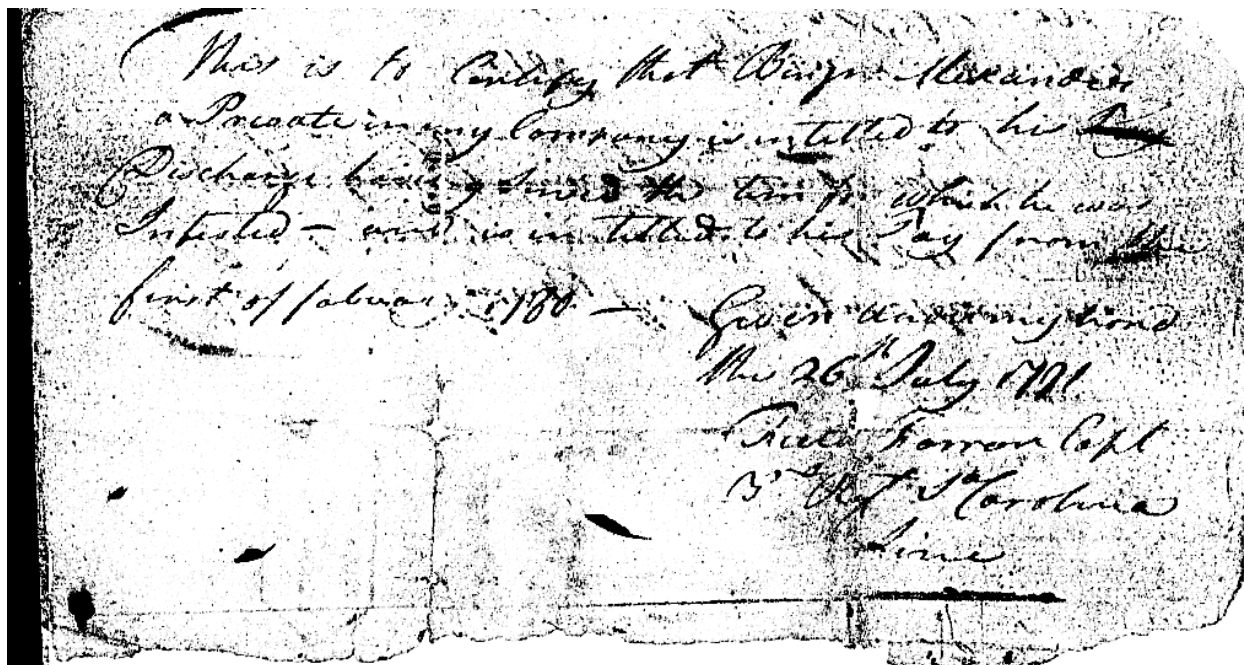 This is to Certify that Benjn Alexander
a Private in my Company is intitled to his
Discharge having Served the term for which he was
Inlisted – and is intitled to his Pay from the
first of febuary 1780 –
Given under my hand
the 26th July 1781
Field Farrar Capt
3rd Regt So Carolina
Line